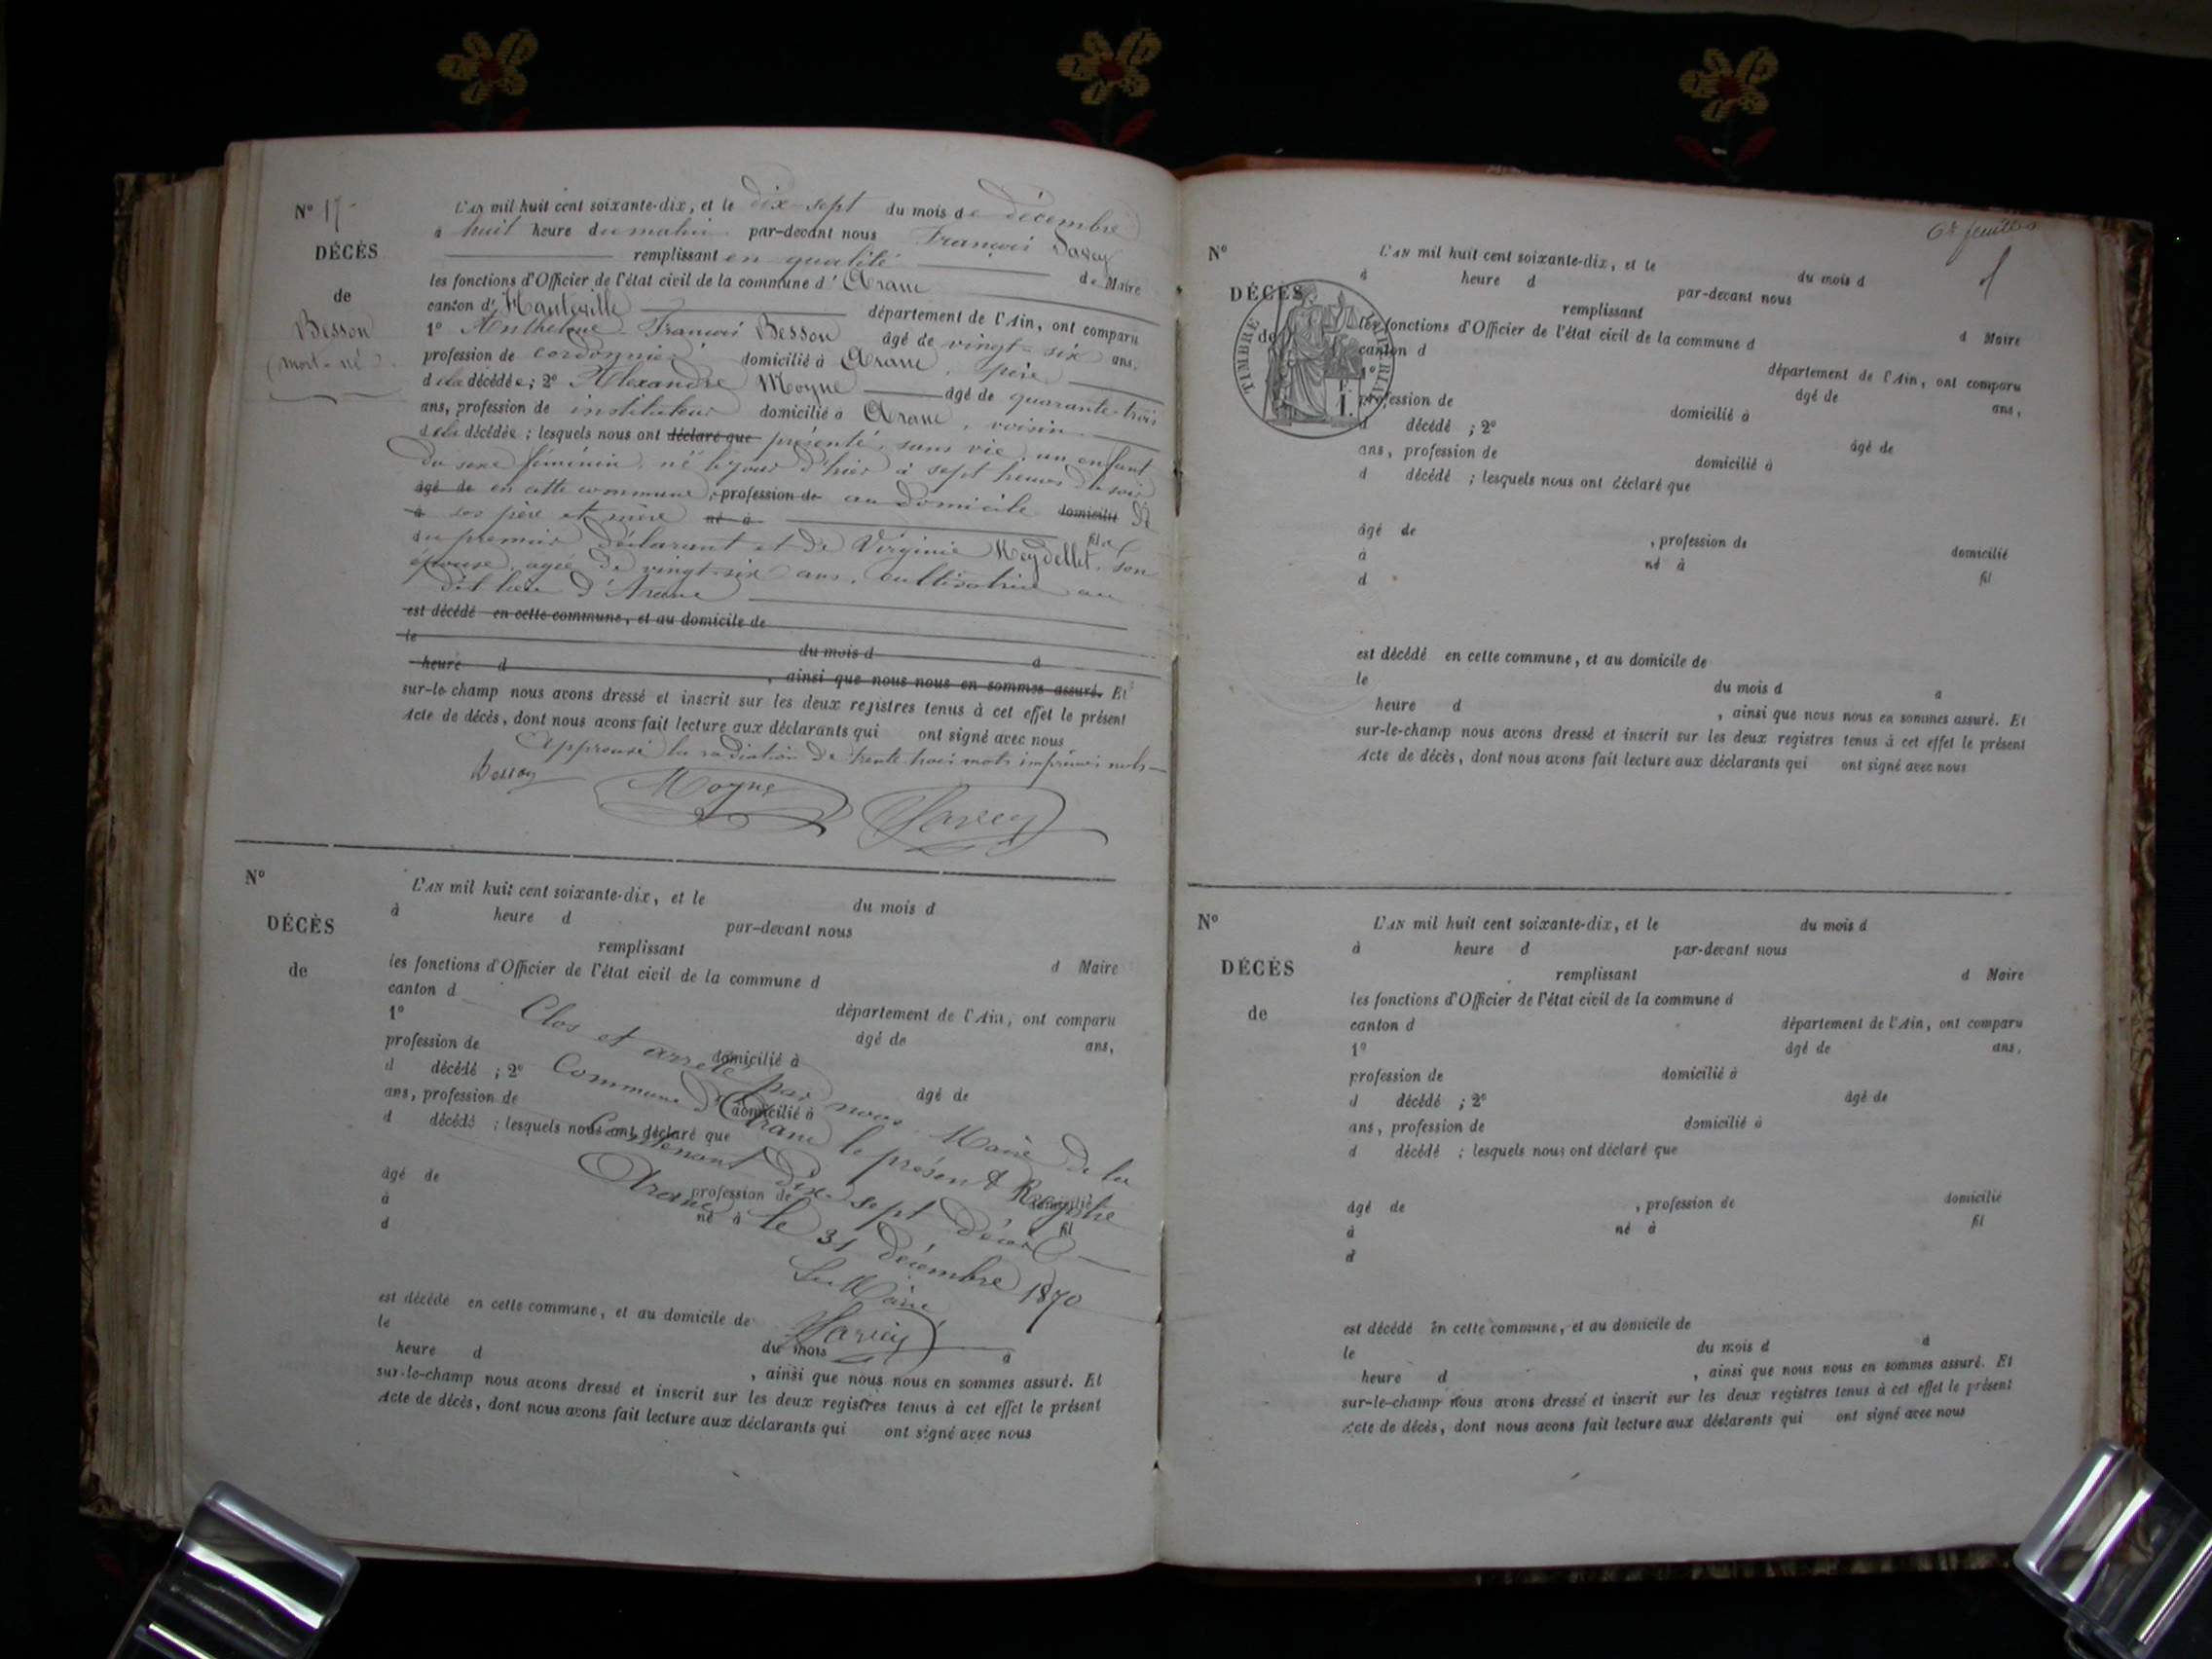 N° 17
DÉCÈS
de
Besson
(mort-né).
L'AN mil huit cent soixante-dix, et le dix-sept du mois de décembre
à huit heure du matin par-devant nous François Savey
remplissant en qualité de Maire
les fonctions d'Officier de l'état civil de la commune d'Aranc
canton d'Hauteville département de l'Ain, ont comparu
1° Anthelme François Besson âgé de vingt-six ans,
profession de cordonnier domicilié à Aranc, père
d la décédée; 2° Alexandre Moyne âgé de quarante-trois
ans, profession de instituteur domicilié à Aranc, voisin
d la décédée; lesquels nous ont déclaré que présenté, sans vie, un enfant
du sexe féminin, né le jour d'hier à sept heures du soir
âgé de en cette commune, profession de au domicile domicilié de
à ses père et mère né à fil
du premier déclarant et de Virginie Meydellet, son
épouse, agée de vingt-six ans, cultivatrice au
dit lieu d'Aranc
est décédé en cette commune, et au domicile de
le du mois d à
heure d , ainsi que nous nous en sommes assuré. Et
sur-le-champ nous avons dressé et inscrit sur les deux registres tenus à cet effet le présent
Acte de décès, dont nous avons fait lecture aux déclarants qui ont signé avec nous
Approuvé la radiation de trente-trois mots imprimés nuls
Besson Moyne Savey
N°
DÉCÈS
de
L'AN mil huit cent soixante-dix, et le du mois d
à heure d par-devant nous
remplissant d Maire
les fonctions d'Officier de l'état civil de la commune d
canton d département de l'Ain, ont comparu
1° âgé de ans,
profession de domicilié à
d décédé ; 2° âgé de
ans, profession de domicilié à
d décédé ; lesquels nous ont déclaré que
âgé de , profession de domicilié
à né à fil
d
Clos et arrêté par nous, Maire de la
Commune d'Aranc le présent Registre
Contenant dix-sept décès
Aranc, le 31 décembre 1870
Le Maire
Savey
est décédé en cette commune, et au domicile de
le du mois à
heure d , ainsi que nous nous en sommes assuré. Et
sur-le-champ nous avons dressé et inscrit sur les deux registres tenus à cet effet le présent
Acte de décès, dont nous avons fait lecture aux déclarants qui ont signé avec nous
6e feuillet
N°
DÉCÈS
de
TIMBRE IMPÉRIAL
L'AN mil huit cent soixante-dix, et le du mois d
à heure d par-devant nous
remplissant d Maire
les fonctions d'Officier de l'état civil de la commune d
canton d département de l'Ain, ont comparu
1° âgé de ans,
profession de domicilié à
d décédé ; 2° âgé de
ans, profession de domicilié à
d décédé ; lesquels nous ont déclaré que
âgé de , profession de domicilié
à né à fil
d
est décédé en cette commune, et au domicile de
le du mois d à
heure d , ainsi que nous nous en sommes assuré. Et
sur-le-champ nous avons dressé et inscrit sur les deux registres tenus à cet effet le présent
Acte de décès, dont nous avons fait lecture aux déclarants qui ont signé avec nous
N°
DÉCÈS
de
L'AN mil huit cent soixante-dix, et le du mois d
à heure d par-devant nous
remplissant d Maire
les fonctions d'Officier de l'état civil de la commune d
canton d département de l'Ain, ont comparu
1° âgé de ans,
profession de domicilié à
d décédé ; 2° âgé de
ans, profession de domicilié à
d décédé ; lesquels nous ont déclaré que
âgé de , profession de domicilié
à né à fil
d
est décédé en cette commune, et au domicile de
le du mois d à
heure d , ainsi que nous nous en sommes assuré. Et
sur-le-champ nous avons dressé et inscrit sur les deux registres tenus à cet effet le présent
Acte de décès, dont nous avons fait lecture aux déclarants qui ont signé avec nous